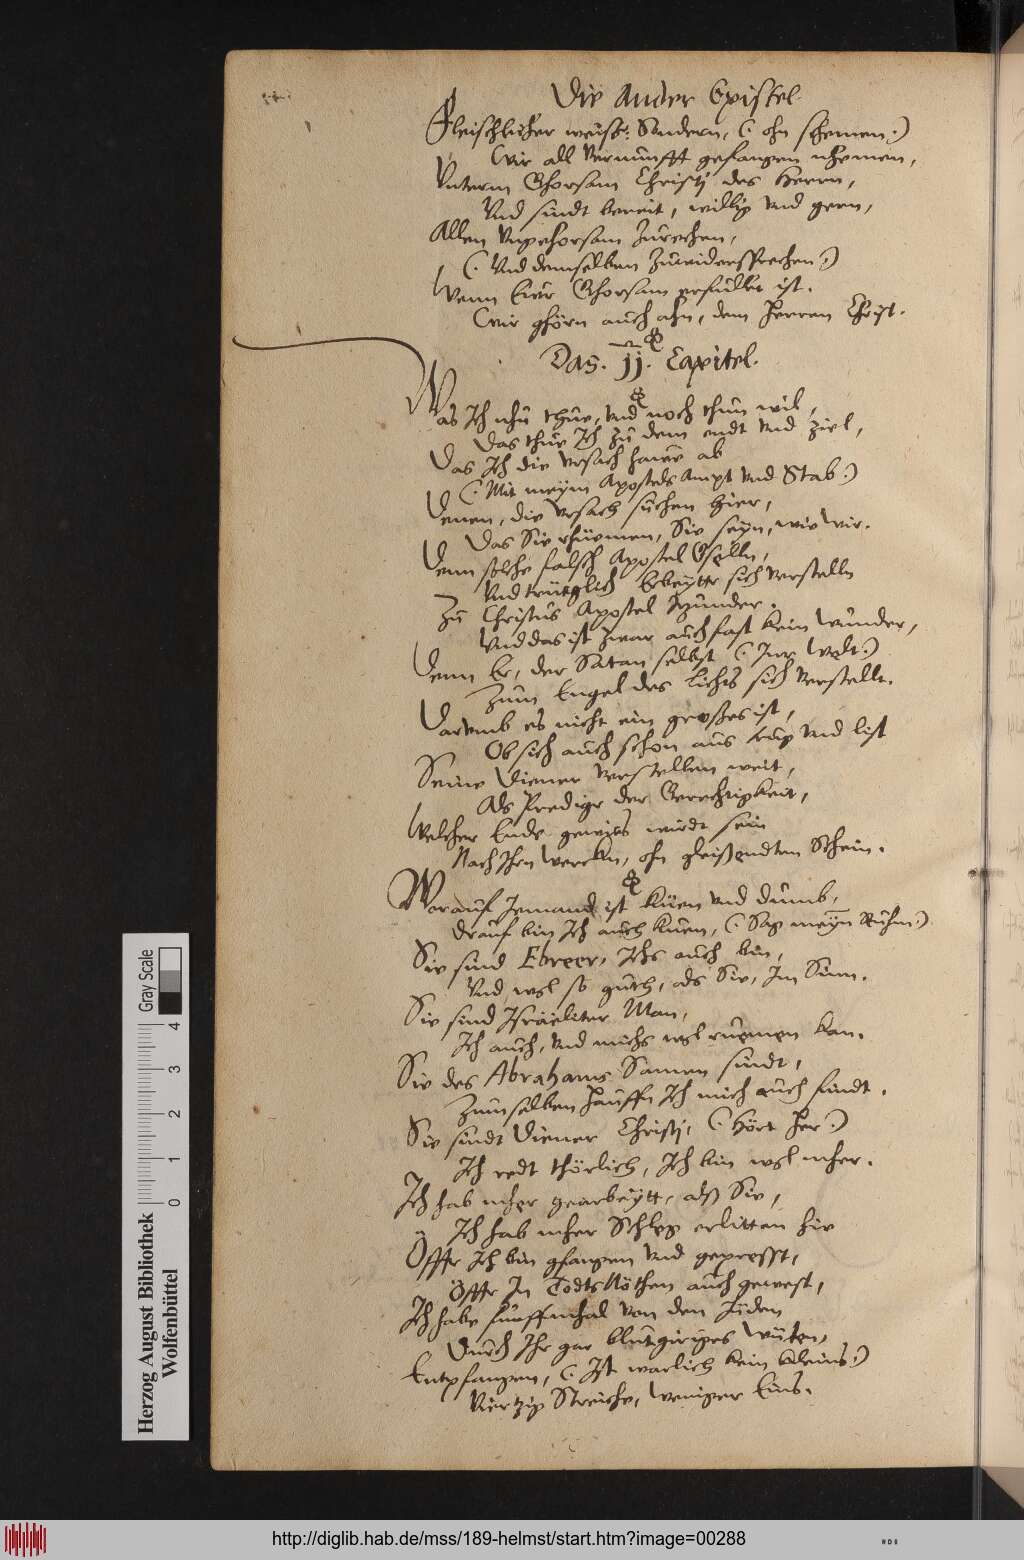 Die Ander Epistel.
Fleischlicher weise: Sondern, (: ohn schemen:)
Wir all Vernunfft gefangen nhemen,
Vnterm Ghorsam Christi des Herrn,
Vnd sindt bereit, willig vnd gern,
Allen Vngehorsam Zurechen,
(: Vnd demselben Zuwidersprechen:)
Wenn Ewr Ghorsam erfüllet ist.
Wir ghörn auch ahn, dem Herren Christ.
Das. 11. Capitel.
Was Ich nhu thue, vnd noch thun wil,
Das thue Ich zu dem endt vnd Ziel,
Das Ich die Vrsach hawe ab
(: Mit meym Apostels Ampt vnd Stab:)
Denen, die Vrsach suchen hier,
Das Sie rhüemen, Sie seyn, wie Wir.
Denn solche falsch Apostel Gselln,
Vnd trüglich Erbeytter sich Verstelln
Zu Christus Apostel
Vnd das ist Zwar auch fast kein Wunder,
Denn Er, der Satan selbst (: Inr Welt:)
Zum Engel des Lichts sich Verstellt.
Darumb es nicht ein großes ist,
Ob sich auch schon aus trug vnd list
Seine Diener Verstellen weit,
Als Prediger der Gerechtigkeit,
Welcher Ende gewiss wirdt sein
Nach Ihrn Wercken, ohn gleißendten Schein.
Worauf Jemand ist Küen vnd dumb,
Drauf bin Ich auch kuen, (: Sag meyn Ruhm:)
Sie sind Ebreer, Ichs auch bin,
Vnd wol so guth, als Sie, Im Sinn.
Sie sind Israeliter Man,
Ich auch, vnd michs wol ruemen kan.
Sie des Abrahams Samen sindt,
Zum selben Hauffn Ich mich auch findt.
Sie sindt Diener Christi, (: Hört Her:)
Ich redt thörlich, Ich bin wol mher.
Ich hab mher gearbeytt, alß Sie,
Ich hab mher Schleg erlitten hie
Öffter Ich bin gfangen vnd gepresst,
Öffter In Todts Nöthen auch gewest,
Ich habe fünffmhal von den Jüden
Durch Ihr gar blutgiriges Wüten,
Entpfangen, (: Ist warlich kein kleins:)
Viertzig Streiche, Weniger Eins.
Gray Scale
0 1 2 3 4
Herzog August Bibliothek
Wolfenbüttel
http://diglib.hab.de/mss/189-helmst/start.htm?image=00288